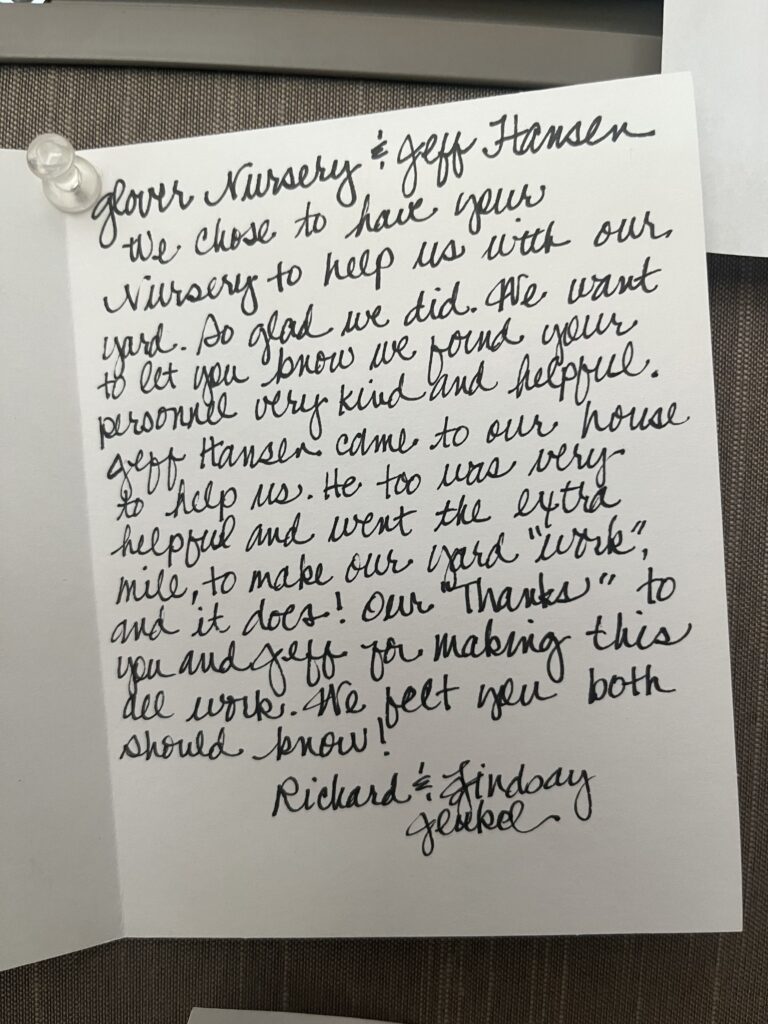 Glover Nursery & Jeff Hansen
We chose to have your
Nursery to help us with our
yard. So glad we did. We want
to let you know we found your
personnel very kind and helpful.
Jeff Hansen came to our house
to help us. He too was very
helpful and went the extra
mile, to make our yard "work",
and it does! Our "Thanks" to
you and Jeff for making this
all work. We felt you both
should know!
Richard & Lindsay